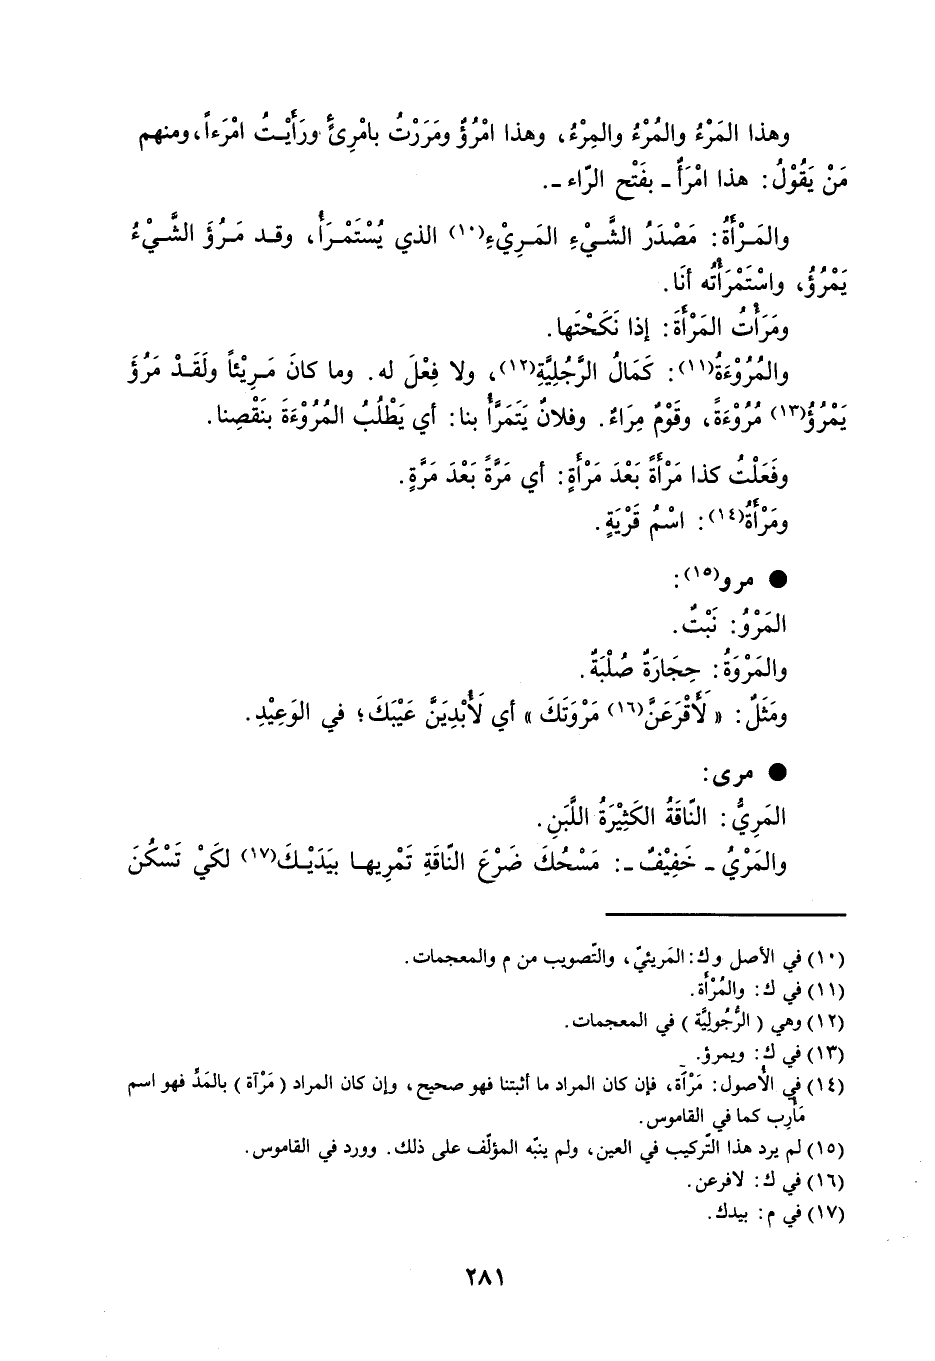 وهذا المَرْءُ والمُرْءُ والمِرْءُ، وهذا امْرُؤٌ ومَرَرْتُ بامْرِئٍ ورَأَيْتُ امْرَءاً، ومنهم
مَنْ يَقُوْلُ: هذا امْرَأٌ ـ بفَتْحِ الرّاء ـ.
والمَرْأَةُ: مَصْدَرُ الشَّيْءِ المَرِيْءِ(١٠) الذي يُسْتَمْرَأُ، وقد مَرُؤَ الشَّيْءُ
يَمْرُؤُ، واسْتَمْرَأْتُه أنَا.
ومَرَأْتُ المَرْأَةَ: إذا نَكَحْتَها.
والمُرُوْءَةُ(١١): كَمَالُ الرَّجُلِيَّةِ(١٢)، ولا فِعْلَ له. وما كانَ مَرِيْئاً ولَقَدْ مَرُؤَ
يَمْرُؤُ(١٣) مُرُوْءَةً، وقَوْمٌ مِرَاءٌ. وفلانٌ يَتَمَرَّأُ بنا: أي يَطْلُبُ المُرُوْءَةَ بنَقْصِنا.
وفَعَلْتُ كذا مَرْأَةً بَعْدَ مَرْأَةٍ: أي مَرَّةً بَعْدَ مَرَّةٍ.
ومَرْأَةُ(١٤): اسْمُ قَرْيَةٍ.
● مرو(١٥):
المَرْوُ: نَبْتٌ.
والمَرْوَةُ: حِجَارَةٌ صُلْبَةٌ.
ومَثَلٌ: « لَأَقْرَعَنَّ(١٦) مَرْوَتَكَ » أي لَأُبْدِيَنَّ عَيْبَكَ؛ في الوَعِيْدِ.
● مرى:
المَرِيُّ: النّاقَةُ الكَثِيْرَةُ اللَّبَنِ.
والمَرْيُ ـ خَفِيْفٌ ـ: مَسْحُكَ ضَرْعَ النّاقَةِ تَمْرِيها بيَدَيْكَ(١٧) لكَيْ تَسْكُنَ
(١٠) في الأصل وك: المَريئيّ، والتّصويب من م والمعجمات.
(١١) في ك: والمُرْأَة.
(١٢) وهي ( الرُّجُولِيَّة ) في المعجمات.
(١٣) في ك: ويمرؤ.
(١٤) في الأُصول: مَرْآة، فإن كان المراد ما أثبتنا فهو صحيح، وإن كان المراد ( مَرْآة ) بالمَدِّ فهو اسم
مَأْرِب كما في القاموس.
(١٥) لم يرد هذا التّركيب في العين، ولم ينبّه المؤلّف على ذلك. وورد في القاموس.
(١٦) في ك: لافرعن.
(١٧) في م: بيدك.
٢٨١